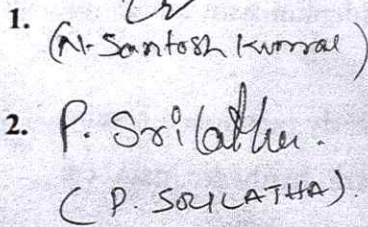 1.
(N. Santosh Kumar)
2. P. Srilatha.
(P. SRILATHA).